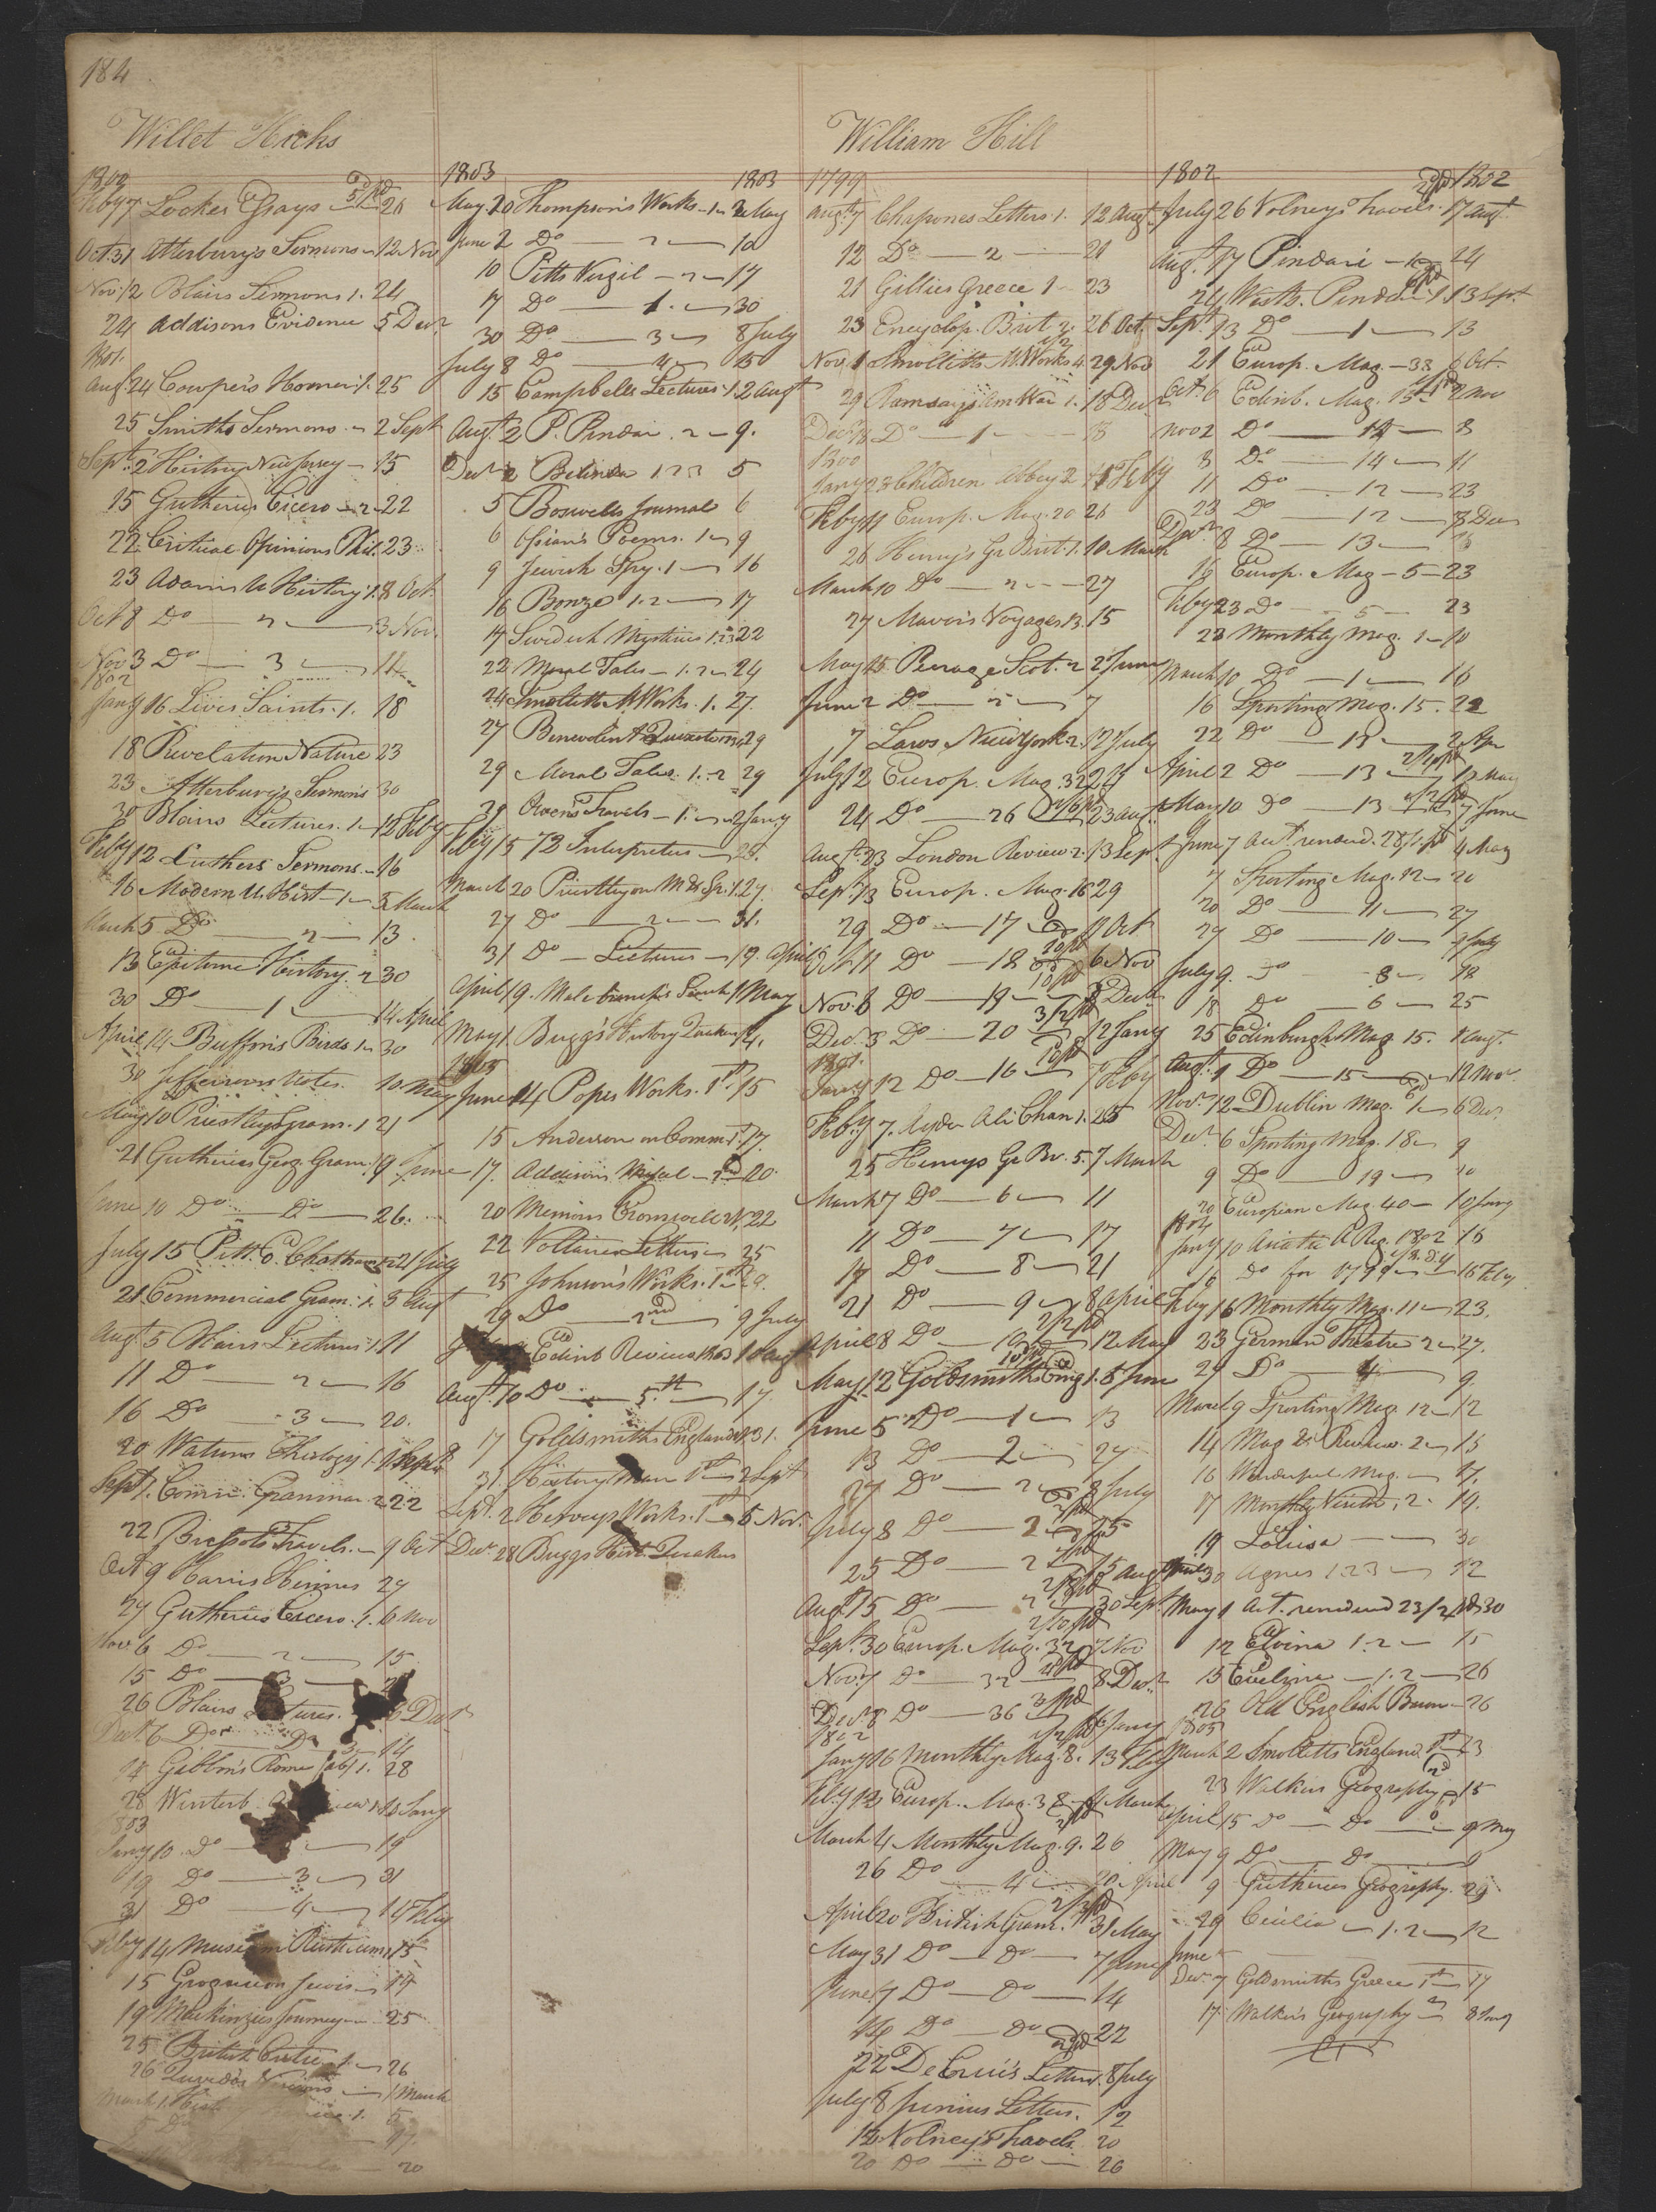 184
Willet Hicks
1800
Feby 7 Lockes Essays 5/pd 26
Oct 31 Atterbury's Sermons 12 Nov
Nov. 12 Blairs Sermons 1. 24
24 Addisons Evidence 5 Decr
1801.
Augt. 24 Cowper's Homer. 1. 25
25 Smiths Sermons 2 Sept
Sept. 2 History New Jersey 15
15 Guthries Cicero 2 22
22 Critical Opinions Phil. 23
23 Adams U History. 1. 8 Oct
Oct 8 Do 2 3 Nov.
Nov 3 Do 3 11
1802
Jany 16 Lives Saints. 1. 18
18 Revelation Nature 23
23 Atterbury's Sermons 30
30 Blairs Lectures. 1 12 Feby
Feby 12 Luthers Sermons 16
16 Modern U. Hist 1 5 March
March 5 Do 2 13
13 Epitome History. 2 30
30 Do 1 14 April
April 14 Buffon's Birds. 1 30
30 Jeffersons Notes. 10 May
May 10 Priestleys Gram. 1 21
21 Guthries Geog. Gram. 9 June
June 10 Do Do 26.
July 15 Pitt E. Chatham 21 July
21 Commercial Gram. 1. 5 Augt
Augt. 5 Blairs Lectures. 1. 11
11 Do 2 16
16 Do 3 20.
20 Watsons Theology 1. 1 Sept
Sept 1. Comm. Grammar 2 22
22 Brissots Travels. 9 Oct
Oct 9 Harris Hermes 27
27 Guthries Cicero. 1. 6 Nov
Nov. 6 Do 2 15
15 Do 3
26 Blairs Lectures. 6 Decr
Decr. 6 Do Do 14
14 Gibbon's Rome 1. 28
28 Winterb. 10 Jany
1803
Jany 10. Do 19
19 Do 3 31
31 Do 4 14 Feby
Feby 14 Museum Rusticum 15
15 Jews 19
19 Mackinzies Journey 25
25 British Critic 1. 26
26 Quevedo's Visions 1 March
March 1.
20
1803 1803
May 20 Thompson's Works 1 2 May
June 2 Do 2 10
10 Pitts Virgil 2 17
17 Do 1. 30
30 Do 3 8 July
July 8 Do 4 15
15 Campbells Lectures. 1. 2 Augt
Augt. 2 P. Pindar. 2 9.
Decr 2 Belinda 1. 2 3 5
5 Boswells Journal 6
6 Ossian's Poems. 1 9
9 Jewish Spy. 1 16
16 Bonze 1. 2 17
17 Swedish Mystries 1. 2 3 22
22 Moral Tales 1. 2 24
24 Smolletts M Works. 1. 27.
27 Benevolent Quixote 29
29 Moral Tales. 1. 2 29
29 Owen's Travels 1. 2 Jany
Feby 15 Interpreter 23.
March 20 Priestley on M & Sp. 1. 27.
27 Do 2 31.
31 Do Lectures 19. April
April 19. Malebranch's Search 1 May
May 1 Bugg's History Quakers 14.
1805
June 14 Popes Works. 1st. 15
15 Anderson on Comm. 1st. 17.
17. Addisons 2nd 20.
20 Memoirs Cromwell 22
22 Voltaires Letters 25
25 Johnson's Works. 1st 29.
29 Do 2nd 9 July
Edinb Review 1803 10 Augt
Augt. 10 Do 5th 17.
17 Goldsmiths England 31.
31. History Man 1st 2 Sept
Sept. 2 Herveys Works. 1st 5 Nov.
Decr 28 Buggs Hist. Quakers
William Hill
1799
Augt. 7 Chapones Letters. 1. 12 Augt
12 Do 2 21
21 Gillies Greece 1 23
23 Encyclop. Brit 2. 26 Oct.
Nov. 1 Smolletts M. Works 4. 29 Nov
29 Ramsays Am War 1. 18 Decr
Decr 18 Do 1 18
1800
Jany 23 Children Abbey 2 11 Feby
Feby 11 Europ. Mag. 20 26
26 Henry's Gr Brit. 1. 10 March
March 10 Do 2 27
27 Mavor's Voyages 13. 15
May 15 Peerage Scot. 2 2 June
June 2 Do 2 7
7 Laws New York 2. 12 July
July 12 Europ. Mag. 32 24
24 Do 26 2/6 pd 23 Augt
Augt. 23 London Review 2. 13 Sept
Sept. 13 Europ. Mag. 16 29
29 Do 17 11 Oct
Oct. 11 Do 18 6 Nov
Nov. 6 Do 19 8 Decr
Decr. 8 Do 20 3/2 pd 12 Jany
1801.
Jany 12 Do 16 7 Feby
Feby. 7. Ayder Ali Chan 1. 25
25 Henrys Gr Br. 5. 7 March
March 7 Do 6 11
11 Do 7 17
17 Do 8 21
21 Do 9 8 April
April 8 Do 10 2/2 pd 12 May
May 12 Goldsmiths Eng 1. 5 June
June 5 Do 1 13
13 Do 2 27
27 Do 2 8 July
July 8 Do 2 25
25 Do 2 15 Augt
Augt 15 Do 2 30 Sept.
Sept. 30 Europ. Mag. 32 2/10 pd 7 Nov
Nov. 7 Do 32 8 Decr
Decr. 8 Do 36 3/pd 16 Jany
1802
Jany 16 Monthly Mag. 8. 13 Feby
Feby 13 Europ. Mag. 38 4 March
March 4 Monthly Mag. 9. 26
26 Do 4 20 April
April 20 British Gram. 31 May
May 31 Do Do 7 June
June 7 Do Do 14
14 Do Do 22
22 De Luc's Letters. 8 July
July 8 Junius Letters. 12
12 Volney's Travels 20
20 Do Do 26
1802 1802
July 26 Volneys Travels. 17 Augt.
Augt. 17 Pindar 24
24 Works. Pindar 1 13 Sept.
Sept. 13 Do 1 13
21 Europ. Mag. 33 6 Oct.
Oct. 6 Edinb. Mag. 15 2 Nov
Nov 2 Do 14 8
8 Do 14 11
11 Do 12 23
23 Do 12 8 Decr
Decr. 8 Do 13 16
16 Europ. Mag 5 23
Feby 23 Do 5 23
23 Monthly Mag. 1 10
March 10 Do 1 16
16 Sporting Mag. 15. 22
22 Do 13 2 Apr
April 2 Do 13 10 May
May 10 Do 13 7 June
June 7 Act. renderd. 28/1. pd 4 May
7 Sporting Mag. 12 20
20 Do 11 27
27 Do 10 9 July
July 9. Do 8 18
18 Do 6 25
25 Edinburgh Mag. 15. 1 Augt.
Augt. 1 Do 15 12 Nov.
Nov. 12 Dublin Mag. 1 6 Decr
Decr. 6 Sporting Mag. 18 9
9 Do 19 20
20 European Mag. 40 10 Jany
1804
Jany 10 Asiatic A Reg. 1802 16
16 Do for 1799 16 Feby
Feby 16 Monthly Mag. 11 23.
23 German Theatre 2 27.
27 Do 4 9.
March 9 Sporting Mag. 12 12
14 Mag & Review. 2 15
16 Wonderful Mag. 17.
17 Monthly Visitor, 2. 19.
19 Louisa 30
April 30 Agnes 1 2 3 12
May 1 Act. rendered 23/2 pd 30
12 Elvina 1. 2 15
15 Eveline 1. 2 26
26 Old English Baron 26
1805
March 2 Smolletts England 1st 23
23 Walkers Geography 15
April 15 Do Do 9 May
May 9 Do Do 9
9 Guthries Geography. 29
29 Cecilia 1. 2 12
June
Decr. 7 Goldsmiths Greece 1st 17
17. Walker's Geography 8 Jany